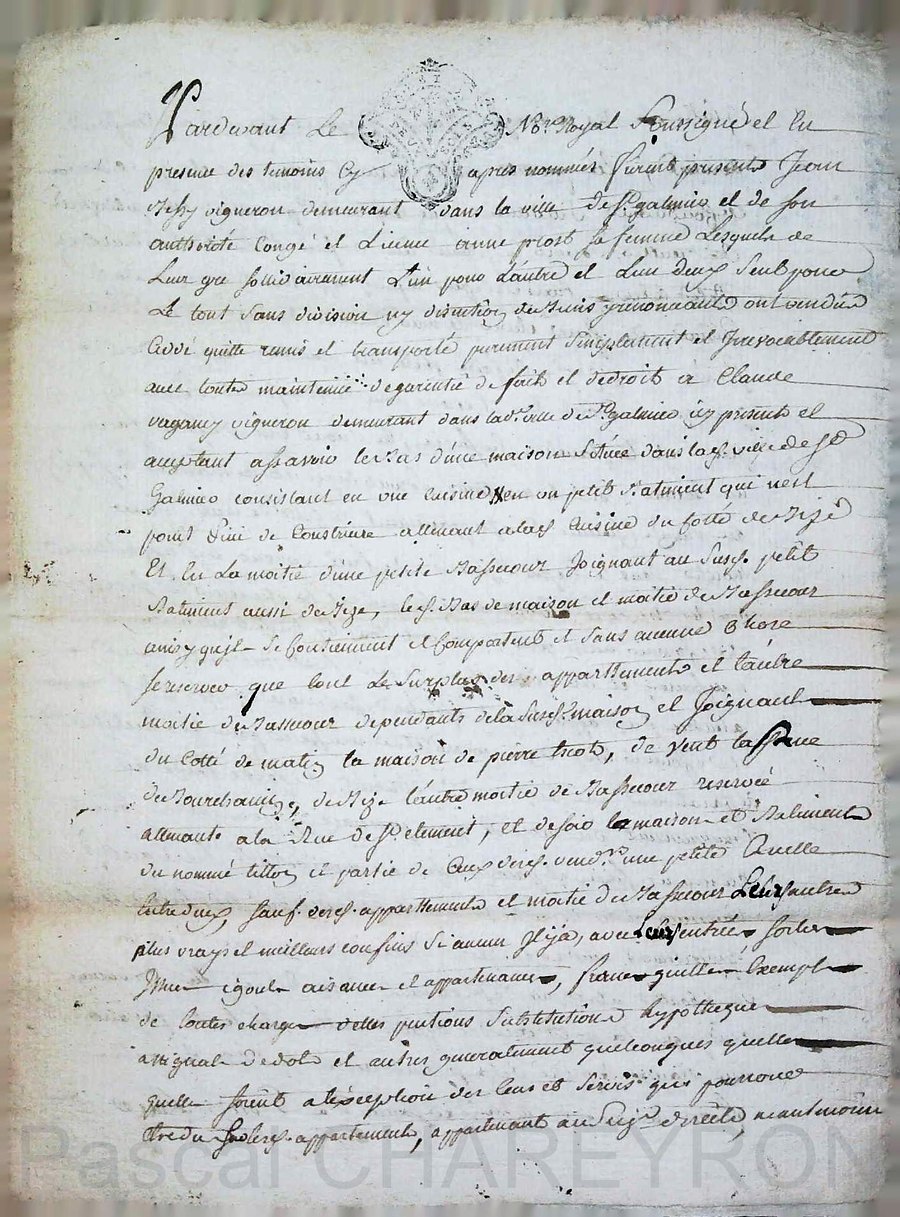 Pardevant Le No.re Royal Soussigné et En
presence des temoins Cy apres nommés furent presents Jean
vigneron demeurant dans la ville de St galmier et de son
authorité Congé et Licence anne priost sa femme Lesquels de
Leur gre sollidairement L'un pour L'autre et L'un deux seul pour
Le tout sans division ny discution de biens y renonceants ont vendu
Ceddé quitte remis et transporté purement simplement et Irrevocablement
avec toutte maintenüe de garentie de fait et de droit a Claude
vaganey vigneron demeurant dans lad. ville de St galmier icy present et
acceptant assavoir le Bas d'une maison Scituée dans lad. ville de St
Galmier consistant en une cuisine en un petit Batiment qui n'est
point fini de Construire attenant a lad. Cuisine du Cotté de Bize
Et En La moitié d'une petite Bassecour Joignant au susd. petit
Batiment aussi de bize, led. Bas de maison et moitié de Bassecour
ainsy qu'ils se Contiennent et Comportent et sans aucune Chose
se reserver que tout Le surplus des appartements et L'autre
moitié de Bassecour dependants de la susd. maison et Joignant
du Cotté de matin la maison de pierre de vent la place
de Bize l'autre moitié de Bassecour reservée
attenante a la Rue de St clement, et de soir la maison et Batiment
du nommé et partie de Ceux desd. vend.rs une petite Ruelle
Entredeux, sauf desd. appartements et moitié de Bassecour Leurs autres
plus vrays et meilleurs confins si aucun Il y a, avec leurs entrées, sorties
egouts aisances et appartenances, francs quittes Exempts
de touttes charges debtes pentions substitutions hypotheques
assignats de dots et autres generalement quelconques quelles
quelles soient a l'exception des Cens et servis qui pourront
être du sur lesd. appartements, appartenant au Seig.r direct, neantmoins
Pascal CHAREYRON